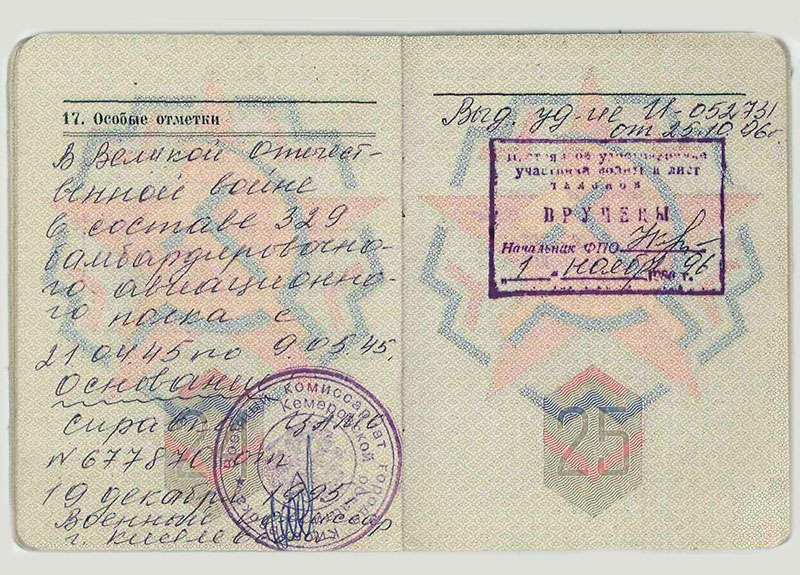 17. Особые отметки
в Великой Отечест-
венной войне
в составе 329
бамбардировочно-
го авиационно-
го полка с
21.04.45 по 9.05.45.
Основание
справка ЦАМО
N 677870 от
19 декабря 1995г
Военный комиссар
г. Киселевска
Военный комиссариат города
Кемеровской области
21
Выд. уд-ие И-052731
от 25.10.96г
удостоверения
участника войны и лист
талонов
ВРУЧЕНЫ
Начальник ФПО
„1" ноября 96 г.
25